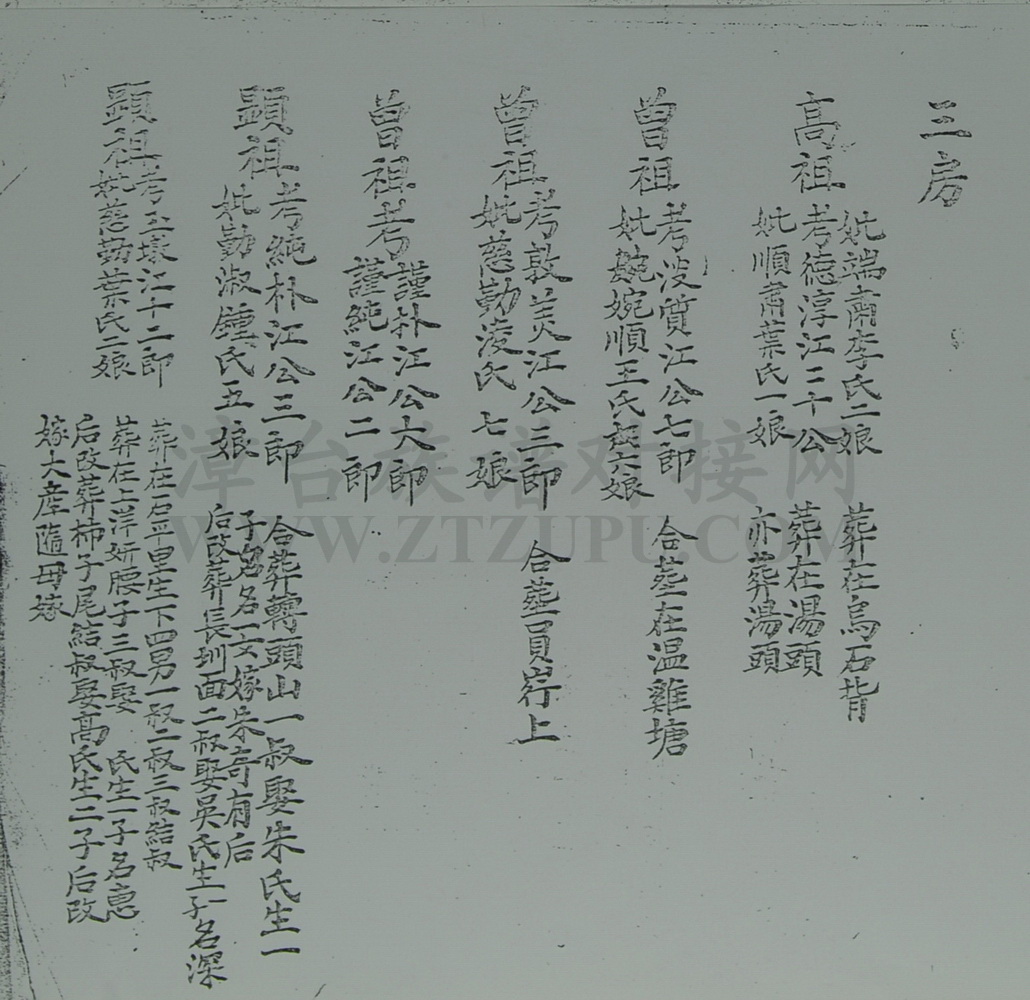 三房
高祖
妣端肅李氏二娘 葬在烏石背
考德淳江二十公 葬在湯頭
妣順肅葉氏一娘 亦葬湯頭
曾祖
考淡質江公七郎
妣婉順王氏六娘
合葬在温雞塘
曾祖
考敦美江公三郎
妣慈勤凌氏七娘
合葬員岃上
曾祖考
謹朴江公大郎
謹純江公二郎
顕祖
考純朴江公三郎
妣勤淑鍾氏五娘
合葬轉頭山一叔娶朱氏生一
子名名一女嫁朱奇有后
后改葬長圳面二叔娶吳氏生一子名深
顕祖
考玉壕江十二郎
妣慈勤葉氏二娘
葬在石平里生下四男一叔二叔三叔結叔
葬在上洋妍腰子三叔娶 氏生一子名惠
后改葬柿子尾結叔娶高氏生二子后改
嫁大産隨母嫁
漳台族谱对接网
WWW.ZTZUPU.COM